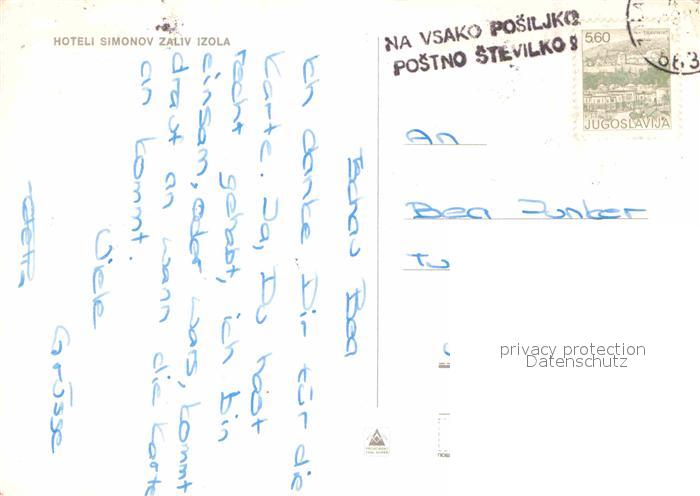 HOTELI SIMONOV ZALIV IZOLA
NA VSAKO POŠILJKO
POŠTNO ŠTEVILKO!
5,60
JUGOSLAVIJA
663
Tschau Bea
Ich danke Dir für die
Karte. Ja, Du hast
recht gehabt, ich bin
einsam, oder was, kommt
drauf an wann die Karte
an kommt.
Viele
Grüsse
An
Bea Junker
privacy protection
Datenschutz